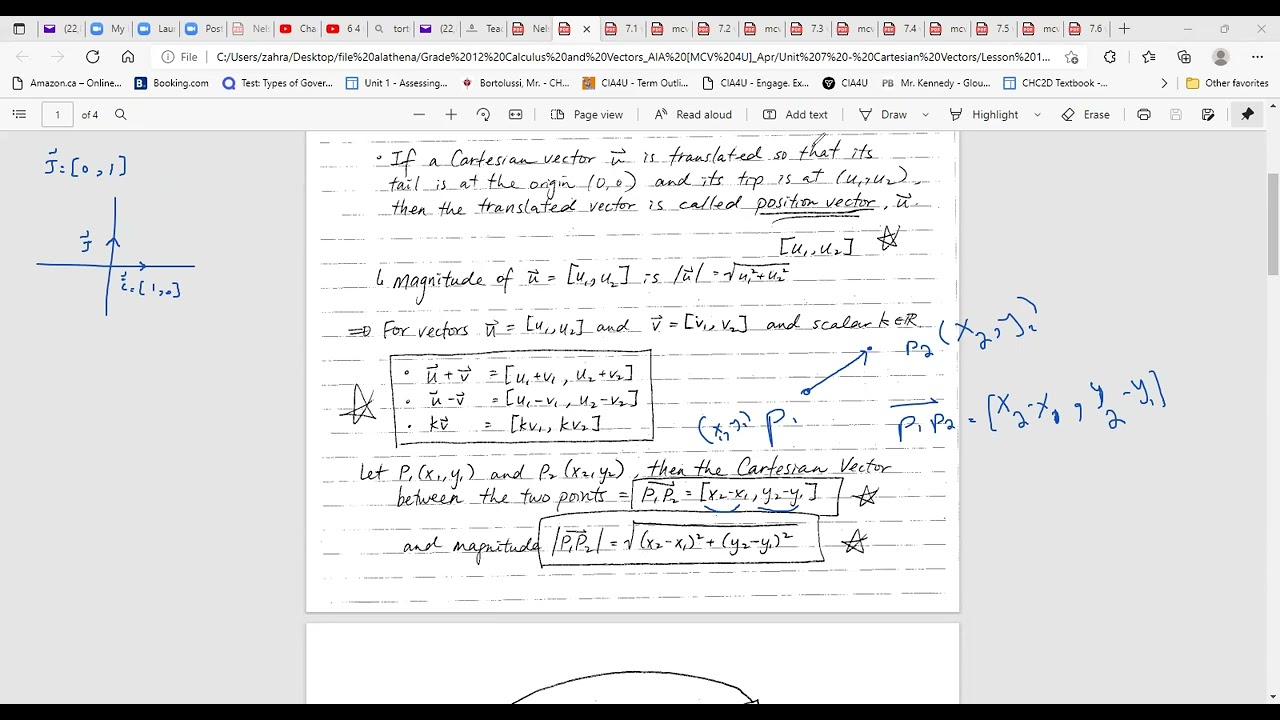 (22. My Lau Post Nel You Cha 6.4 tort (22. Tea Nels 7.1 mcv 7.2 mcv 7.3 mcv 7.4 mcv 7.5 mcv 7.6
File C:/Users/zahra/Desktop/file%20alathena/Grade%2012%20Calculus%20and%20Vectors_AIA%20[MCV%204U]_Apr/Unit%207%20-%20Cartesian%20Vectors/Lesson%201...
Amazon.ca – Online... Booking.com Test: Types of Gover... Unit 1 - Assessing... Bortolussi, Mr. - CH... CIA4U - Term Outli... CIA4U - Engage. Ex... CIA4U Mr. Kennedy - Glou... CHC2D Textbook -... Other favorites
1 of 4 Page view Read aloud Add text Draw Highlight Erase
• If a Cartesian vector u⃗ is translated so that its
tail is at the origin (0,0) and its tip is at (u₁,u₂),
then the translated vector is called position vector, u⃗.
[u₁, u₂]
Magnitude of u⃗ = [u₁, u₂] is |u⃗| = √u₁²+u₂²
⇒ For vectors u⃗ = [u₁, u₂] and v⃗ = [v₁, v₂] and scalar k∈R
• u⃗+v⃗ = [u₁+v₁, u₂+v₂]
• u⃗-v⃗ = [u₁-v₁, u₂-v₂]
• kv⃗ = [kv₁, kv₂]
Let P₁(x₁,y₁) and P₂(x₂,y₂) then the Cartesian Vector
between the two points = P₁P₂ = [x₂-x₁, y₂-y₁]
and magnitude |P₁P₂| = √(x₂-x₁)²+(y₂-y₁)²
J⃗=[0,1]
J⃗
i⃗=[1,0]
P₂ (x₂,y₂)
(x₁,y₁) P₁
P₁P₂ = [x₂-x₁, y₂-y₁]